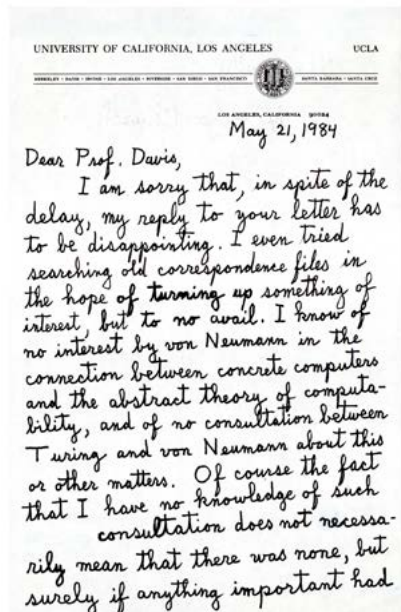 UNIVERSITY OF CALIFORNIA, LOS ANGELES UCLA
BERKELEY • DAVIS • IRVINE • LOS ANGELES • RIVERSIDE • SAN DIEGO • SAN FRANCISCO SANTA BARBARA • SANTA CRUZ
LOS ANGELES, CALIFORNIA 90024
May 21, 1984
Dear Prof. Davis,
I am sorry that, in spite of the
delay, my reply to your letter has
to be disappointing. I even tried
searching old correspondence files in
the hope of turning up something of
interest, but to no avail. I know of
no interest by von Neumann in the
connection between concrete computers
and the abstract theory of computa-
bility, and of no consultation between
Turing and von Neumann about this
or other matters. Of course the fact
that I have no knowledge of such
consultation does not necessa-
rily mean that there was none, but
surely if anything important had